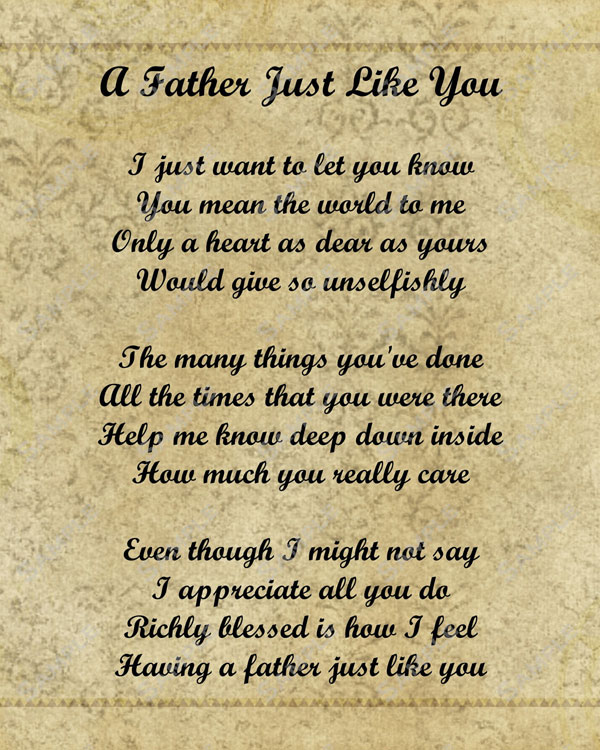 A Father Just Like You
I just want to let you know
You mean the world to me
Only a heart as dear as yours
Would give so unselfishly
The many things you've done
All the times that you were there
Help me know deep down inside
How much you really care
Even though I might not say
I appreciate all you do
Richly blessed is how I feel
Having a father just like you